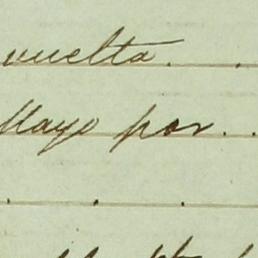 vuelta. .
Mayo por . .
. . .